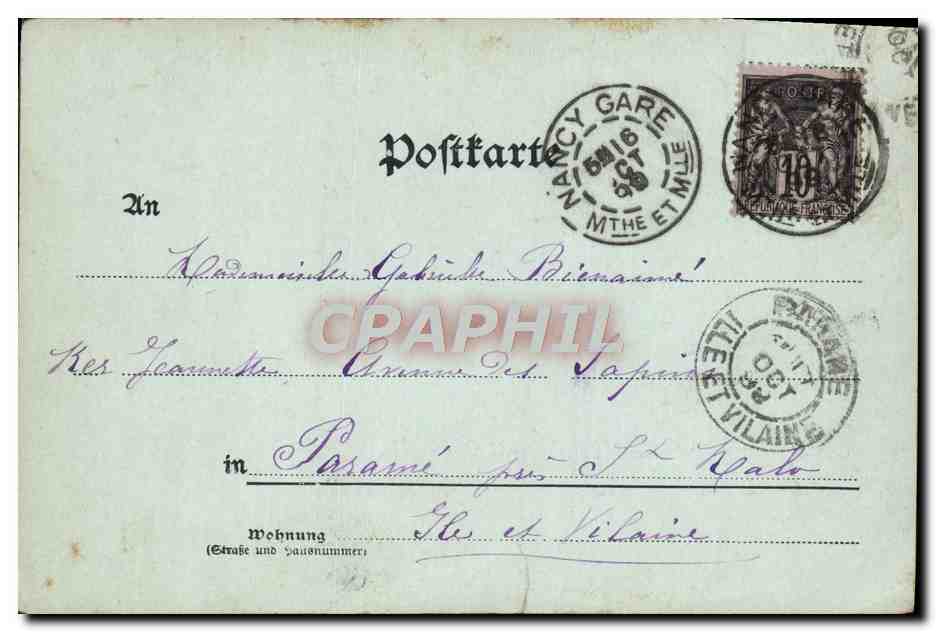 Postkarte
NANCY GARE
5M 16
OCT
99
MTHE ET MLLE
10
REPUBLIQUE FRANCAISE
An
Mademoiselle Gabrielle Bienaimé
CPAPHIL
Ker Jeannette Avenue des Sapins
PARAME
OCT
ILLE ET VILAINE
in Paramé près St Malo
Wohnung
(Straße und Hausnummer)
Ile et Vilaine